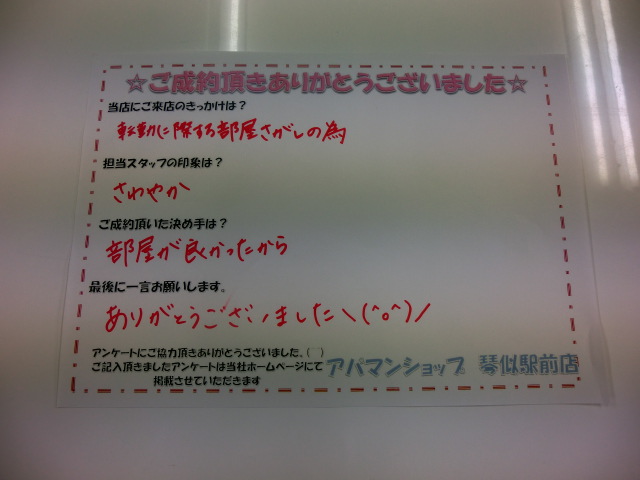 ☆ご成約頂きありがとうございました☆
当店にご来店のきっかけは？
転勤に際する部屋さがしの為
担当スタッフの印象は？
さわやか
ご成約頂いた決め手は？
部屋が良かったから
最後に一言お願いします。
ありがとうございました＼(^o^)／
アンケートにご協力頂きありがとうございました、(￣￣)
ご記入頂きましたアンケートは当社ホームページにて
掲載させていただきます
アパマンショップ 琴似駅前店